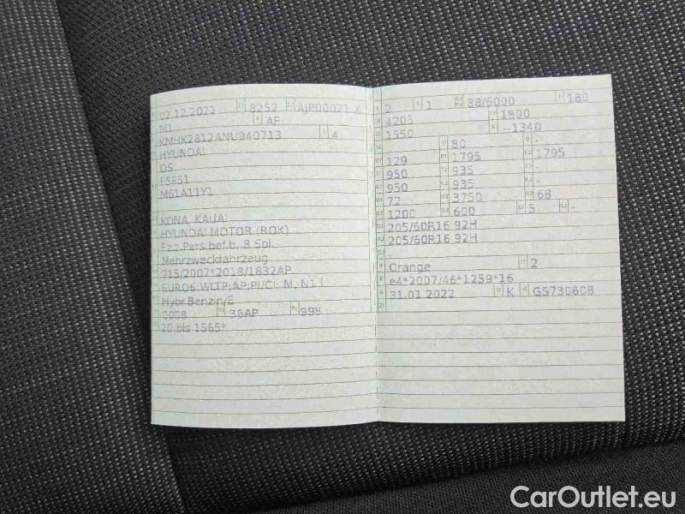 02.12.2022 8252 AJP00021 4
M1 AF
KMHK2812ANU840713 4
HYUNDAI
OS
F5P51
M61A11Y1
KONA, KAUAI
HYUNDAI MOTOR (ROK)
Fz.z.Pers.bef.b. 8 Spl.
Mehrzweckfahrzeug
715/2007*2018/1832AP
EURO6 WLTP;AP;PI/CI; M, N1 I
Hybr.Benzin/E
0008 36AP 998
20 bis 1565*
2 1 88/6000 180
4205 1800
1550 -1340
80 -
129 1795 1795
950 935 -
950 935 -
72 3750 68
1200 600 5 -
205/60R16 92H
205/60R16 92H
-
Orange 2
e4*2007/46*1259*16
31.01.2022 K GS730608
CarOutlet.eu